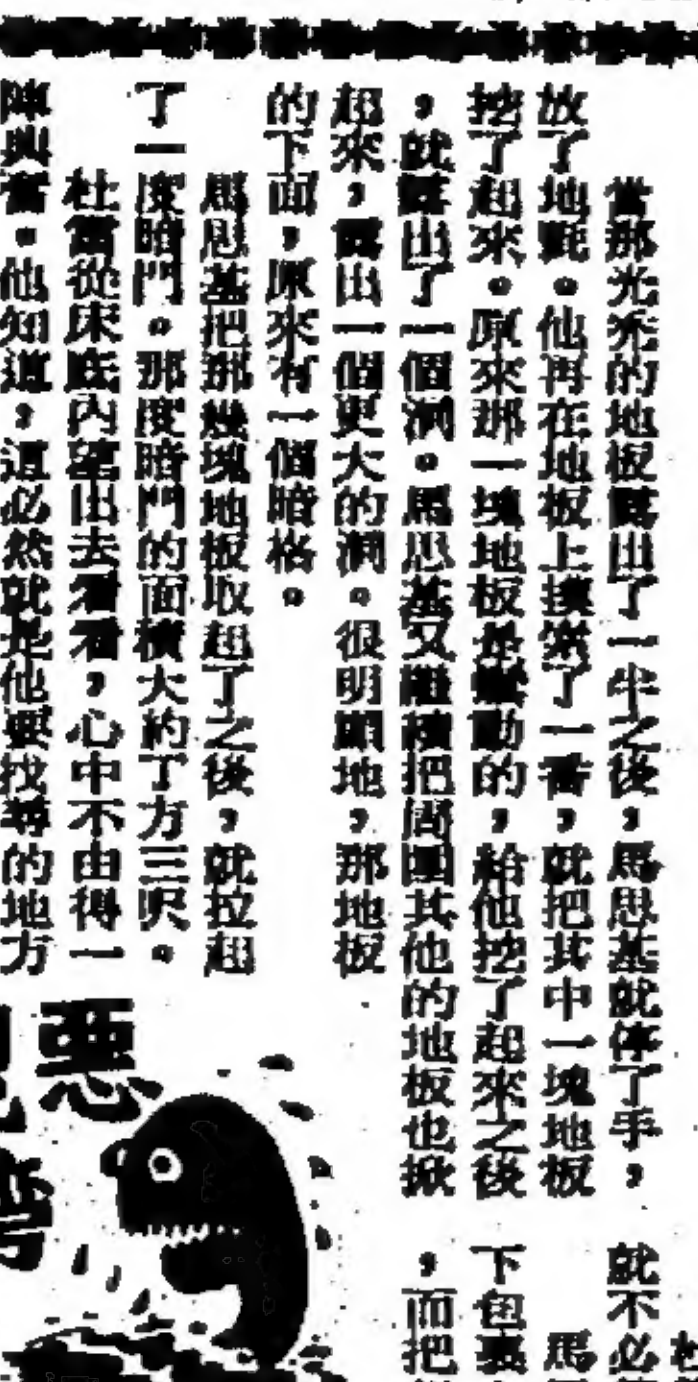 當那光禿的地板露出了一半之後，馬思基就停了手，
放了地氈。他再在地板上摸索了一番，就把其中一塊地板
挖了起來。原來那一塊地板是鬆動的，給他挖了起來之後
，就露出了一個洞。馬思基又繼續把周圍其他的地板也掀
起來，露出一個更大的洞。很明顯地，那地板
的下面，原來有一個暗格。
馬思基把那幾塊地板取起了之後，就拉起
了一度暗門。那度暗門的面積大約丁方三呎。
杜雷從床底內望出去看看，心中不由得一
陣興奮。他知道，這必然就是他要找尋的地方
就不必
下包裹
馬
，而把
惡
灣